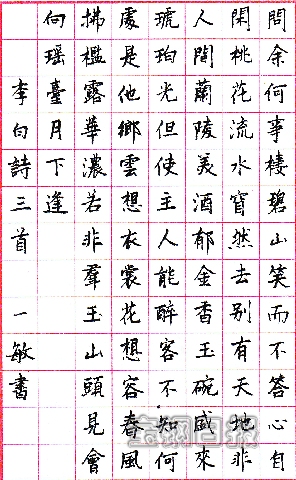 問余何事棲碧山笑而不答心自
閑桃花流水窅然去別有天地非
人間蘭陵美酒郁金香玉碗盛來
琥珀光但使主人能醉客不知何
處是他鄉雲想衣裳花想容春風
拂檻露華濃若非羣玉山頭見會
向瑶臺月下逢
李白詩三首 一敏書
宝钢日报